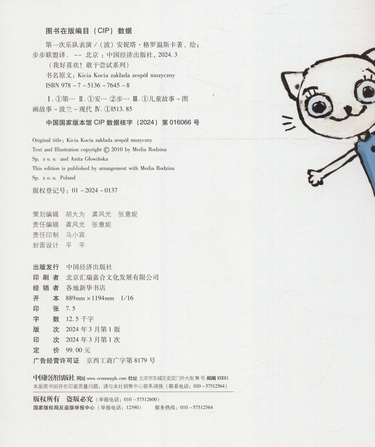 图书在版编目（CIP）数据
第一次乐队表演／（波）安妮塔·格罗温斯卡著、绘；
步步联盟译. -- 北京：中国经济出版社，2024.3
（我好喜欢！敢于尝试系列）
书名原文：Kicia Kocia zakłada zespół muzyczny
ISBN 978-7-5136-7645-8
Ⅰ.①第… Ⅱ.①安… ②步… Ⅲ.①儿童故事－图
画故事－波兰－现代 Ⅳ.①I513.85
中国国家版本馆 CIP 数据核字（2024）第 016066 号
Original title: Kicia Kocia zakłada zespół muzyczny
Text and Illustration copyright © 2010 by Media Rodzina
Sp. z o.o. and Anita Głowińska
This edition is published by arrangement with Media Rodzina
Sp. z o.o. Poland
版权登记号：01-2024-0137
策划编辑 胡大为 龚风光 张意妮
责任编辑 龚风光 张意妮
责任印制 马小宾
封面设计 平 平
出版发行 中国经济出版社
印刷者 北京汇瑞嘉合文化发展有限公司
经销者 各地新华书店
开本 889mm×1194mm 1/16
印张 7.5
字数 12.5千字
版次 2024年3月第1版
印次 2024年3月第1次
定价 99.00元
广告经营许可证 京西工商广字第8179号
中国经济出版社 网址 www.economyph.com 社址 北京市东城区安定门外大街58号 邮编 100011
本版图书如存在印装质量问题，请与本社销售中心联系调换（联系电话：010-57512564）
版权所有 盗版必究（举报电话：010-57512600）
国家版权局反盗版举报中心（举报电话：12390） 服务热线：010-57512564